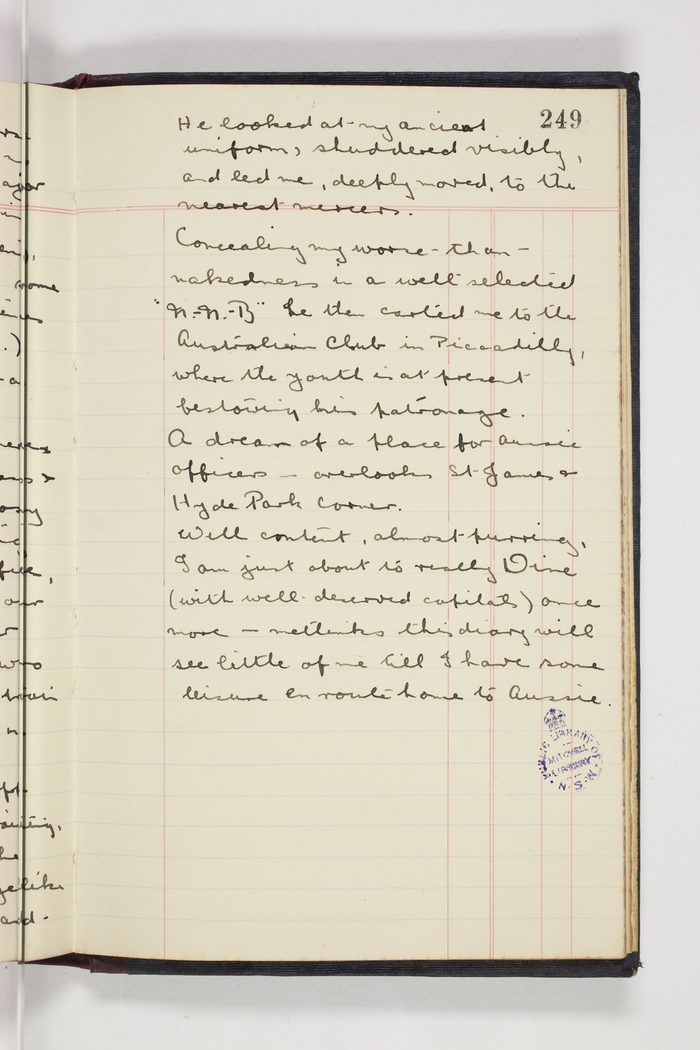 249
He looked at my ancient
uniform, shuddered visibly,
and led me, deeply moved, to the
nearest mercers.
Concealing my worse-than-
nakedness in a well selected
"N.-N.-B" he then carted me to the
Australian Club in Piccadilly,
where the youth is at present
bestowing his patronage.
A dream of a place for aussie
officers — overlooks St James &
Hyde Park Corner.
Well content, almost purring,
I am just about to really Dine
(with well-deserved capitals) once
more — methinks this diary will
see little of me till I have some
leisure en route home to Aussie.
PUBLIC LIBRARY OF
MITCHELL
LIBRARY
N.S.W.